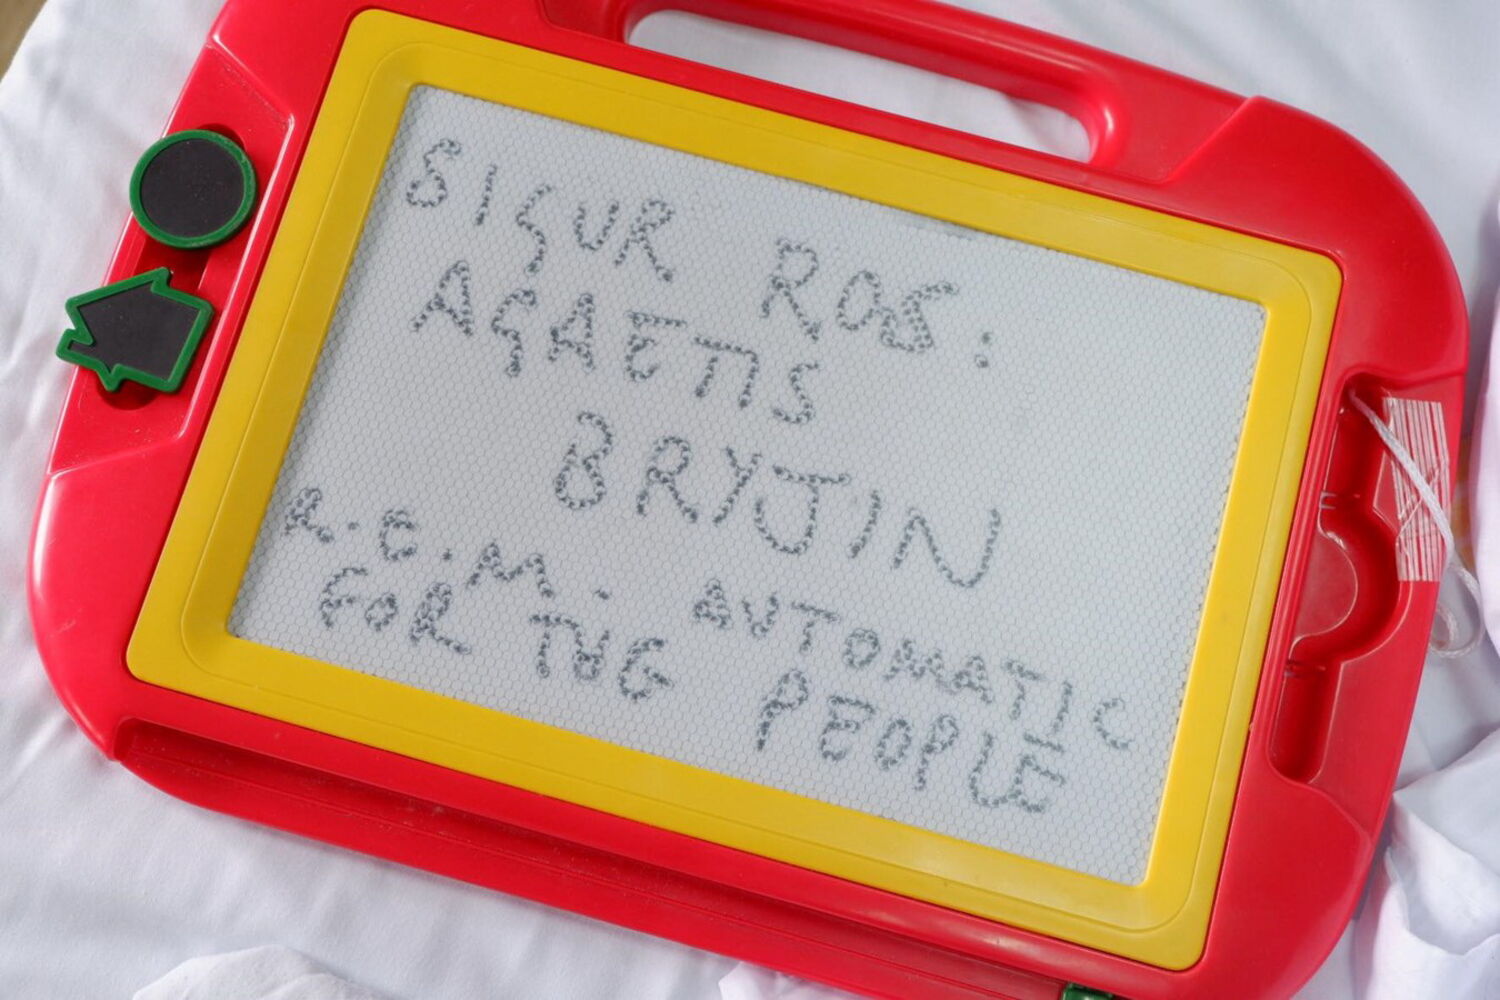 SIGUR ROS:
AGAETIS
BRYJ'IN
R.E.M. AUTOMATIC
FOR THE PEOPLE